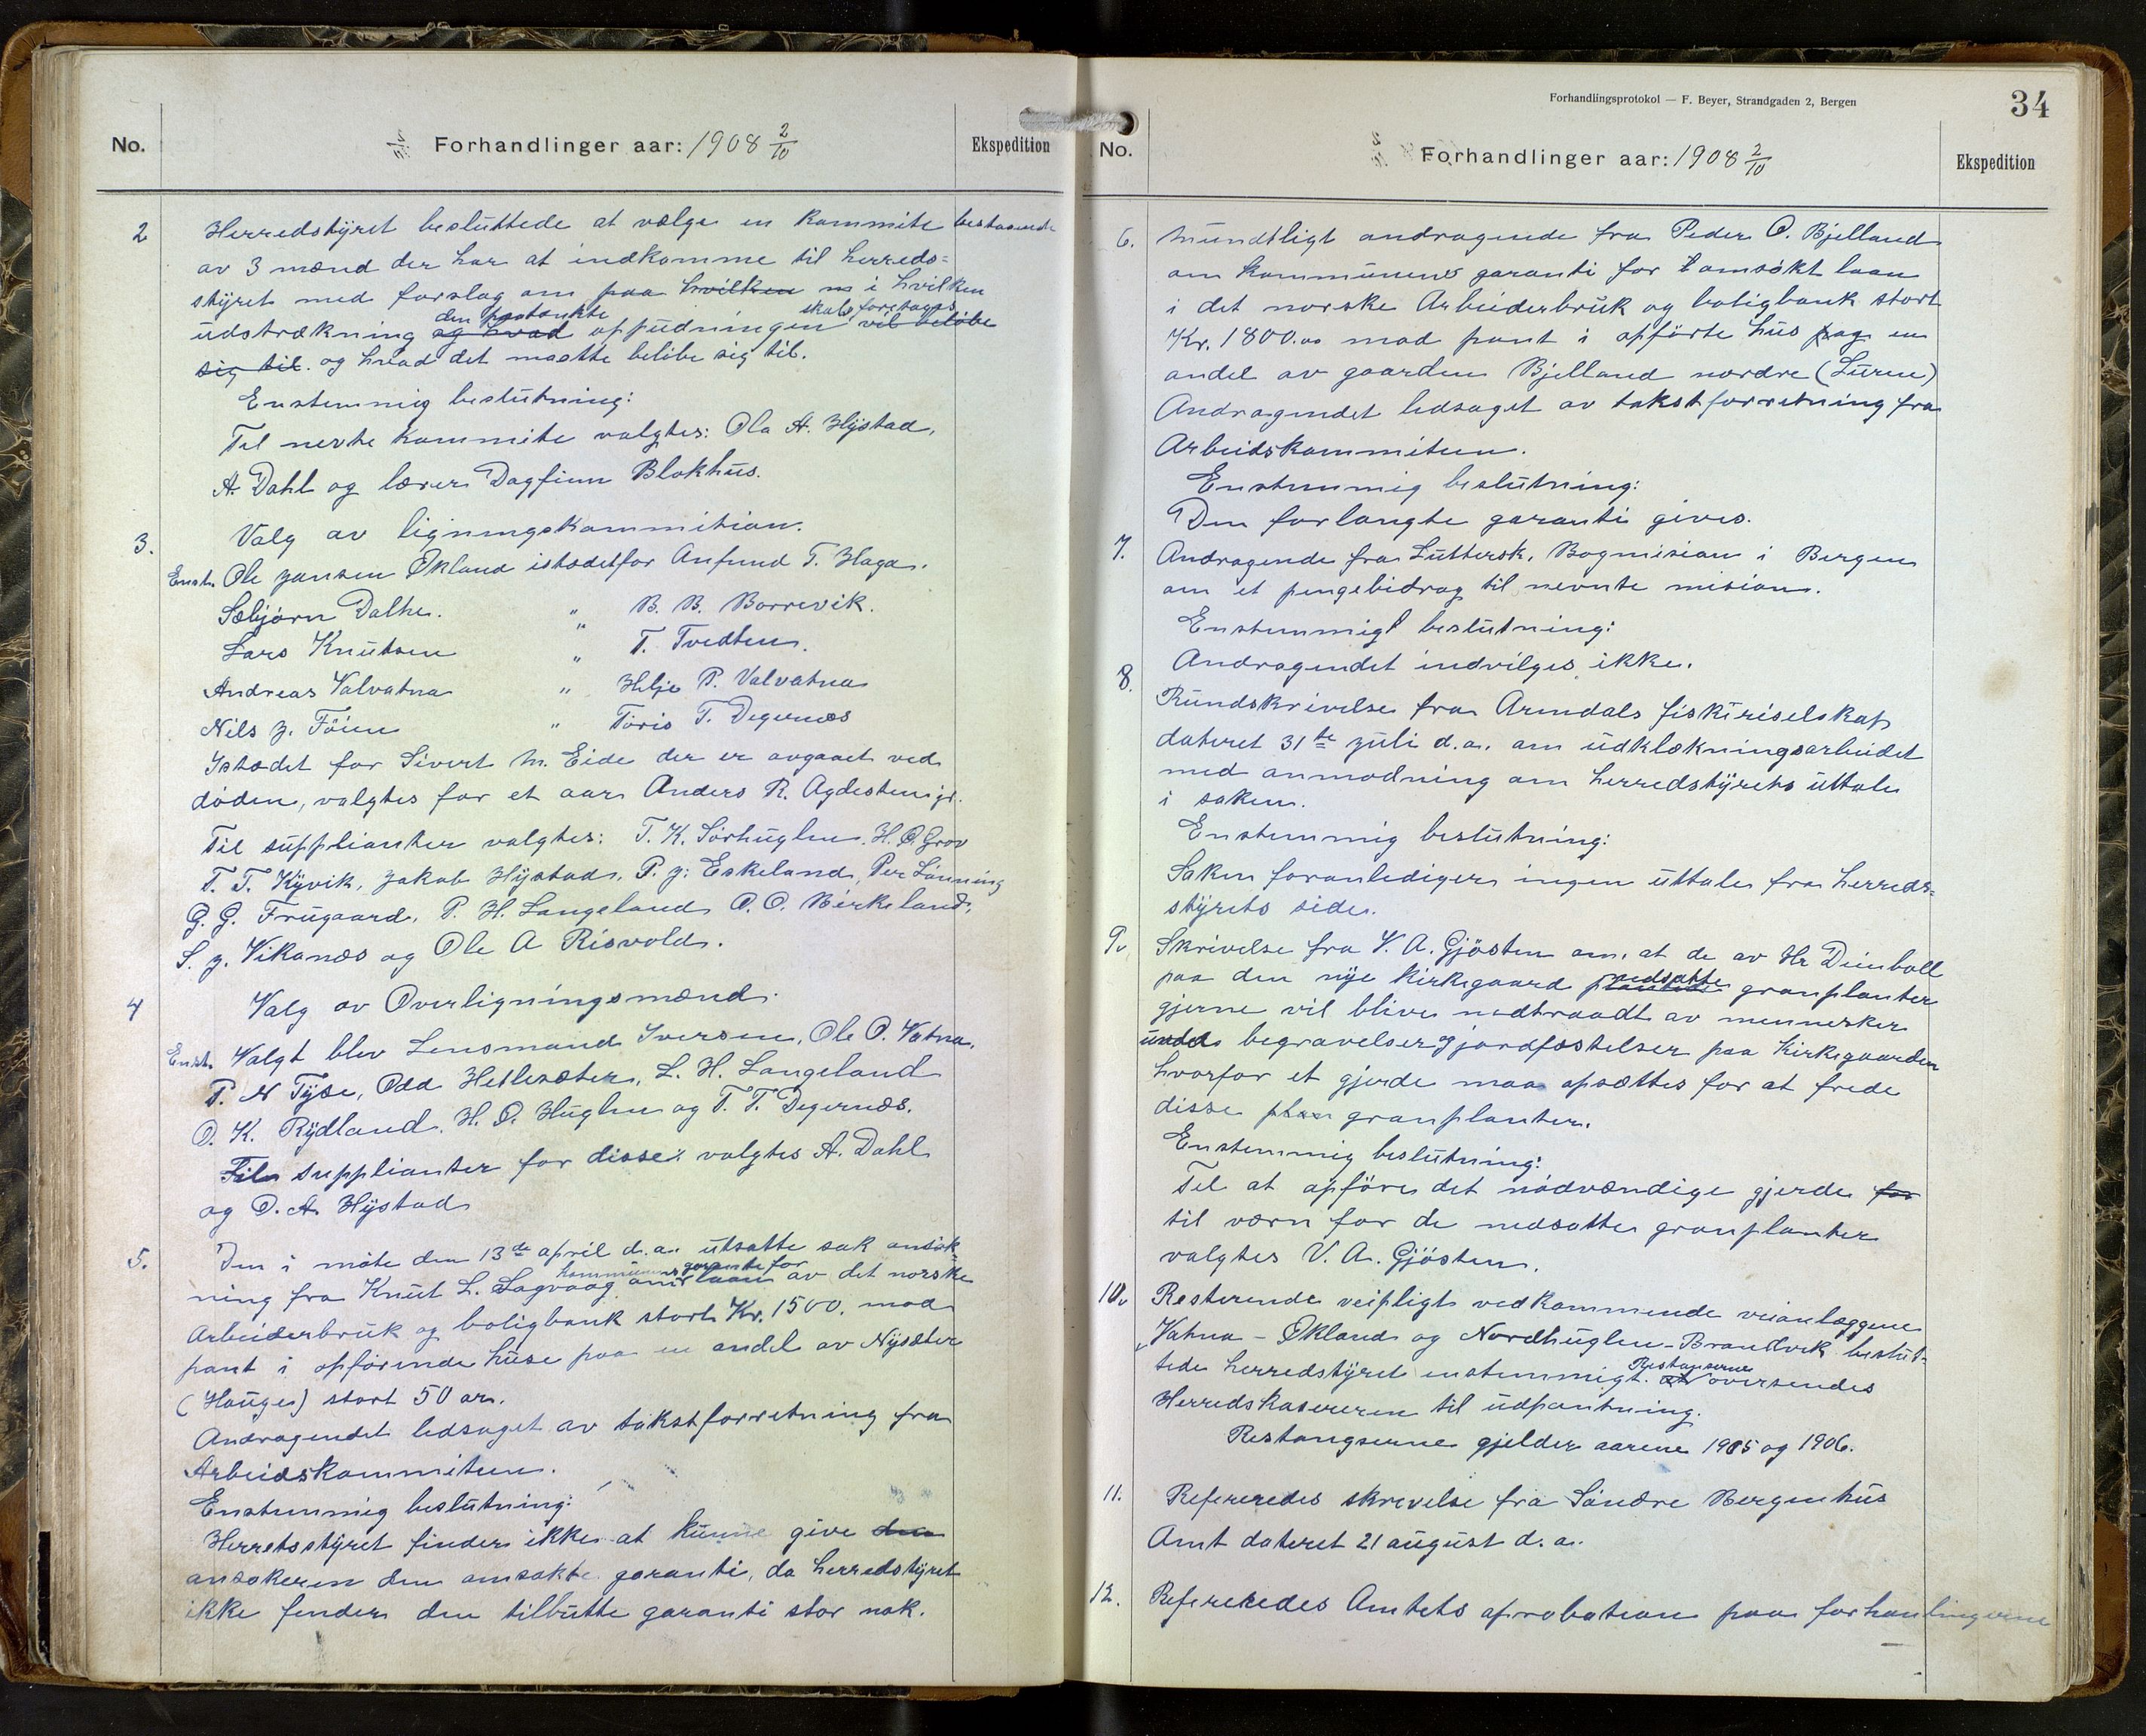 No. Forhandlinger aar: 1908 2/10 Ekspedition
2 Herredstyret besluttede at vælge en kommite bestaaende
av 3 mænd der har at indkomme til herreds=
styret med forslag om paa hvilken i hvilken
den paatænkte skal foretages
udstrækning og hvad oppudningen vil beløbe
sig til. og hvad det maatte beløbe sig til.
Enstemmig beslutning:
Til nevte kommite valgtes: Ola A. Hystad,
A. Dahl og lærer Dagfinn Blokhus.
3. Valg av ligningskommition.
Enst. Ole Jansen Økland istedetfor Anfund T. Haga.
Sæbjørn Dalhe. " B. B. Borrevik.
Lars Knutsen " T. Tvedten.
Andreas Valvatna " Helje P. Valvatna
Nils J. Föien " Töris T. Degernæs
Istædet for Sivert M. Eide der er avgaaet ved
døden, valgtes for et aar Anders R. Agdestein
Til supplianter valgtes: T. K. Sørhuglen. H. O. Grov
T. T. Kyvik, Jakob Hystad, P. J. Eskeland, Per Lönning
G. G. Frugaard, P. H. Langeland O. O. Birkeland,
S. J. Vikanæs og Ole A Risvold.
4 Valg av Overligningsmænd.
Enst. Valgt blev Lensmand Iversen, Ole O. Vatna,
P. N Tyse, Odd Hetlesæter, L. H. Langeland
O. K. Rydland. H. O. Huglen og T. T. Degernæs.
Til supplianter for disse valgtes A. Dahl
og O. A. Hystad
5. Den i møte den 13de april d.a. utsatte sak ansøk=
kommunens garante for
ning fra Knut L. Sagvaag om laan av det norske
Arbeiderbruk og boligbank stort Kr. 1500. mod
pant i opförende huse paa en andel av Nysæter
(Hauge) stort 50 ar.
Andragendet ledsaget av takstforretning fra
Arbeidskommiteen.
Enstemmig beslutning:
Herretsstyret finder ikke at kunne give den
ansøkeren den omsøkte garanti, da herredstyret
ikke fender den tilbutte garanti stor nok.
Forhandlingsprotokol — F. Beyer, Strandgaden 2, Bergen
34
No. Forhandlinger aar: 1908 2/10 Ekspedition
6. Mundtligt andragende fra Peder O. Bjelland
om kommunens garanti for omsøkt laan
i det norske Arbeiderbruk og boligbank stort
Kr. 1800.00 mod pant i opførte hus paa en
andel av gaarden Bjelland nordre (Lurne)
Andragendet ledsaget av takstforretning fra
Arbeidskommiteen.
Enstemmig beslutning:
Den forlangte garanti gives.
7. Andragende fra Luttersk. Bogmision i Bergen
om et pengebidrag til nevnte mision.
Enstemmigt beslutning:
Andragendet indvilges ikke.
8. Rundskrivelse fra Arendals fiskeriselskap
dateret 31te juli d.a. om udklækningsarbeidet
med anmodning om herredstyrets uttale
i saken.
Enstemmig beslutning:
Saken foranlediger ingen uttale fra herreds=
styrets side.
9. Skrivelse fra V. A. Gjøsten om, at de av Hr Deinboll
nedsatte
paa den nye kirkegaard plantede granplanter
gjerne vil blive nedtraadt av mennesker
under begravelser jordfæstelser paa kirkegaarden
hvorfor et gjerde maa opsættes for at frede
disse plan granplanter.
Enstemmig beslutning:
Til at opføre det nödvændige gjerde for
til værn for de nedsatte granplanter
valgtes V. A. Gjösten.
10. Resterende veipligt vedkommende veianlæggene
Vatna - Økland og Nordhuglen - Brandvik beslut-
Restanserne
tede herredstyret enstemmigt. at oversendes
Herredskasereren til udpantning.
Restangserne gjelder aarene 1905 og 1906.
11. Refereredes skrivelse fra Söndre Bergenhus
Amt dateret 21 august d. a.
12. Refereredes Amtets aprobation paa forhanlingerne